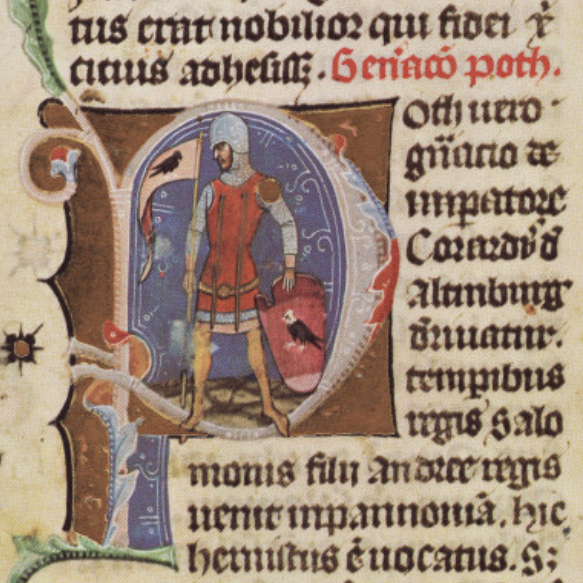 tus erat nobilior qui fidei x̄
ticius adhesiss; . Geńacō poth.
Poth uero
gñacio de
impatore
Corardᵒ d̄
Altmburg
dʳiuatur.
tempibus
regis Salo
monis filii Andree regis
uenit inpannoniā. hic
hernistus ē uocatus. S;